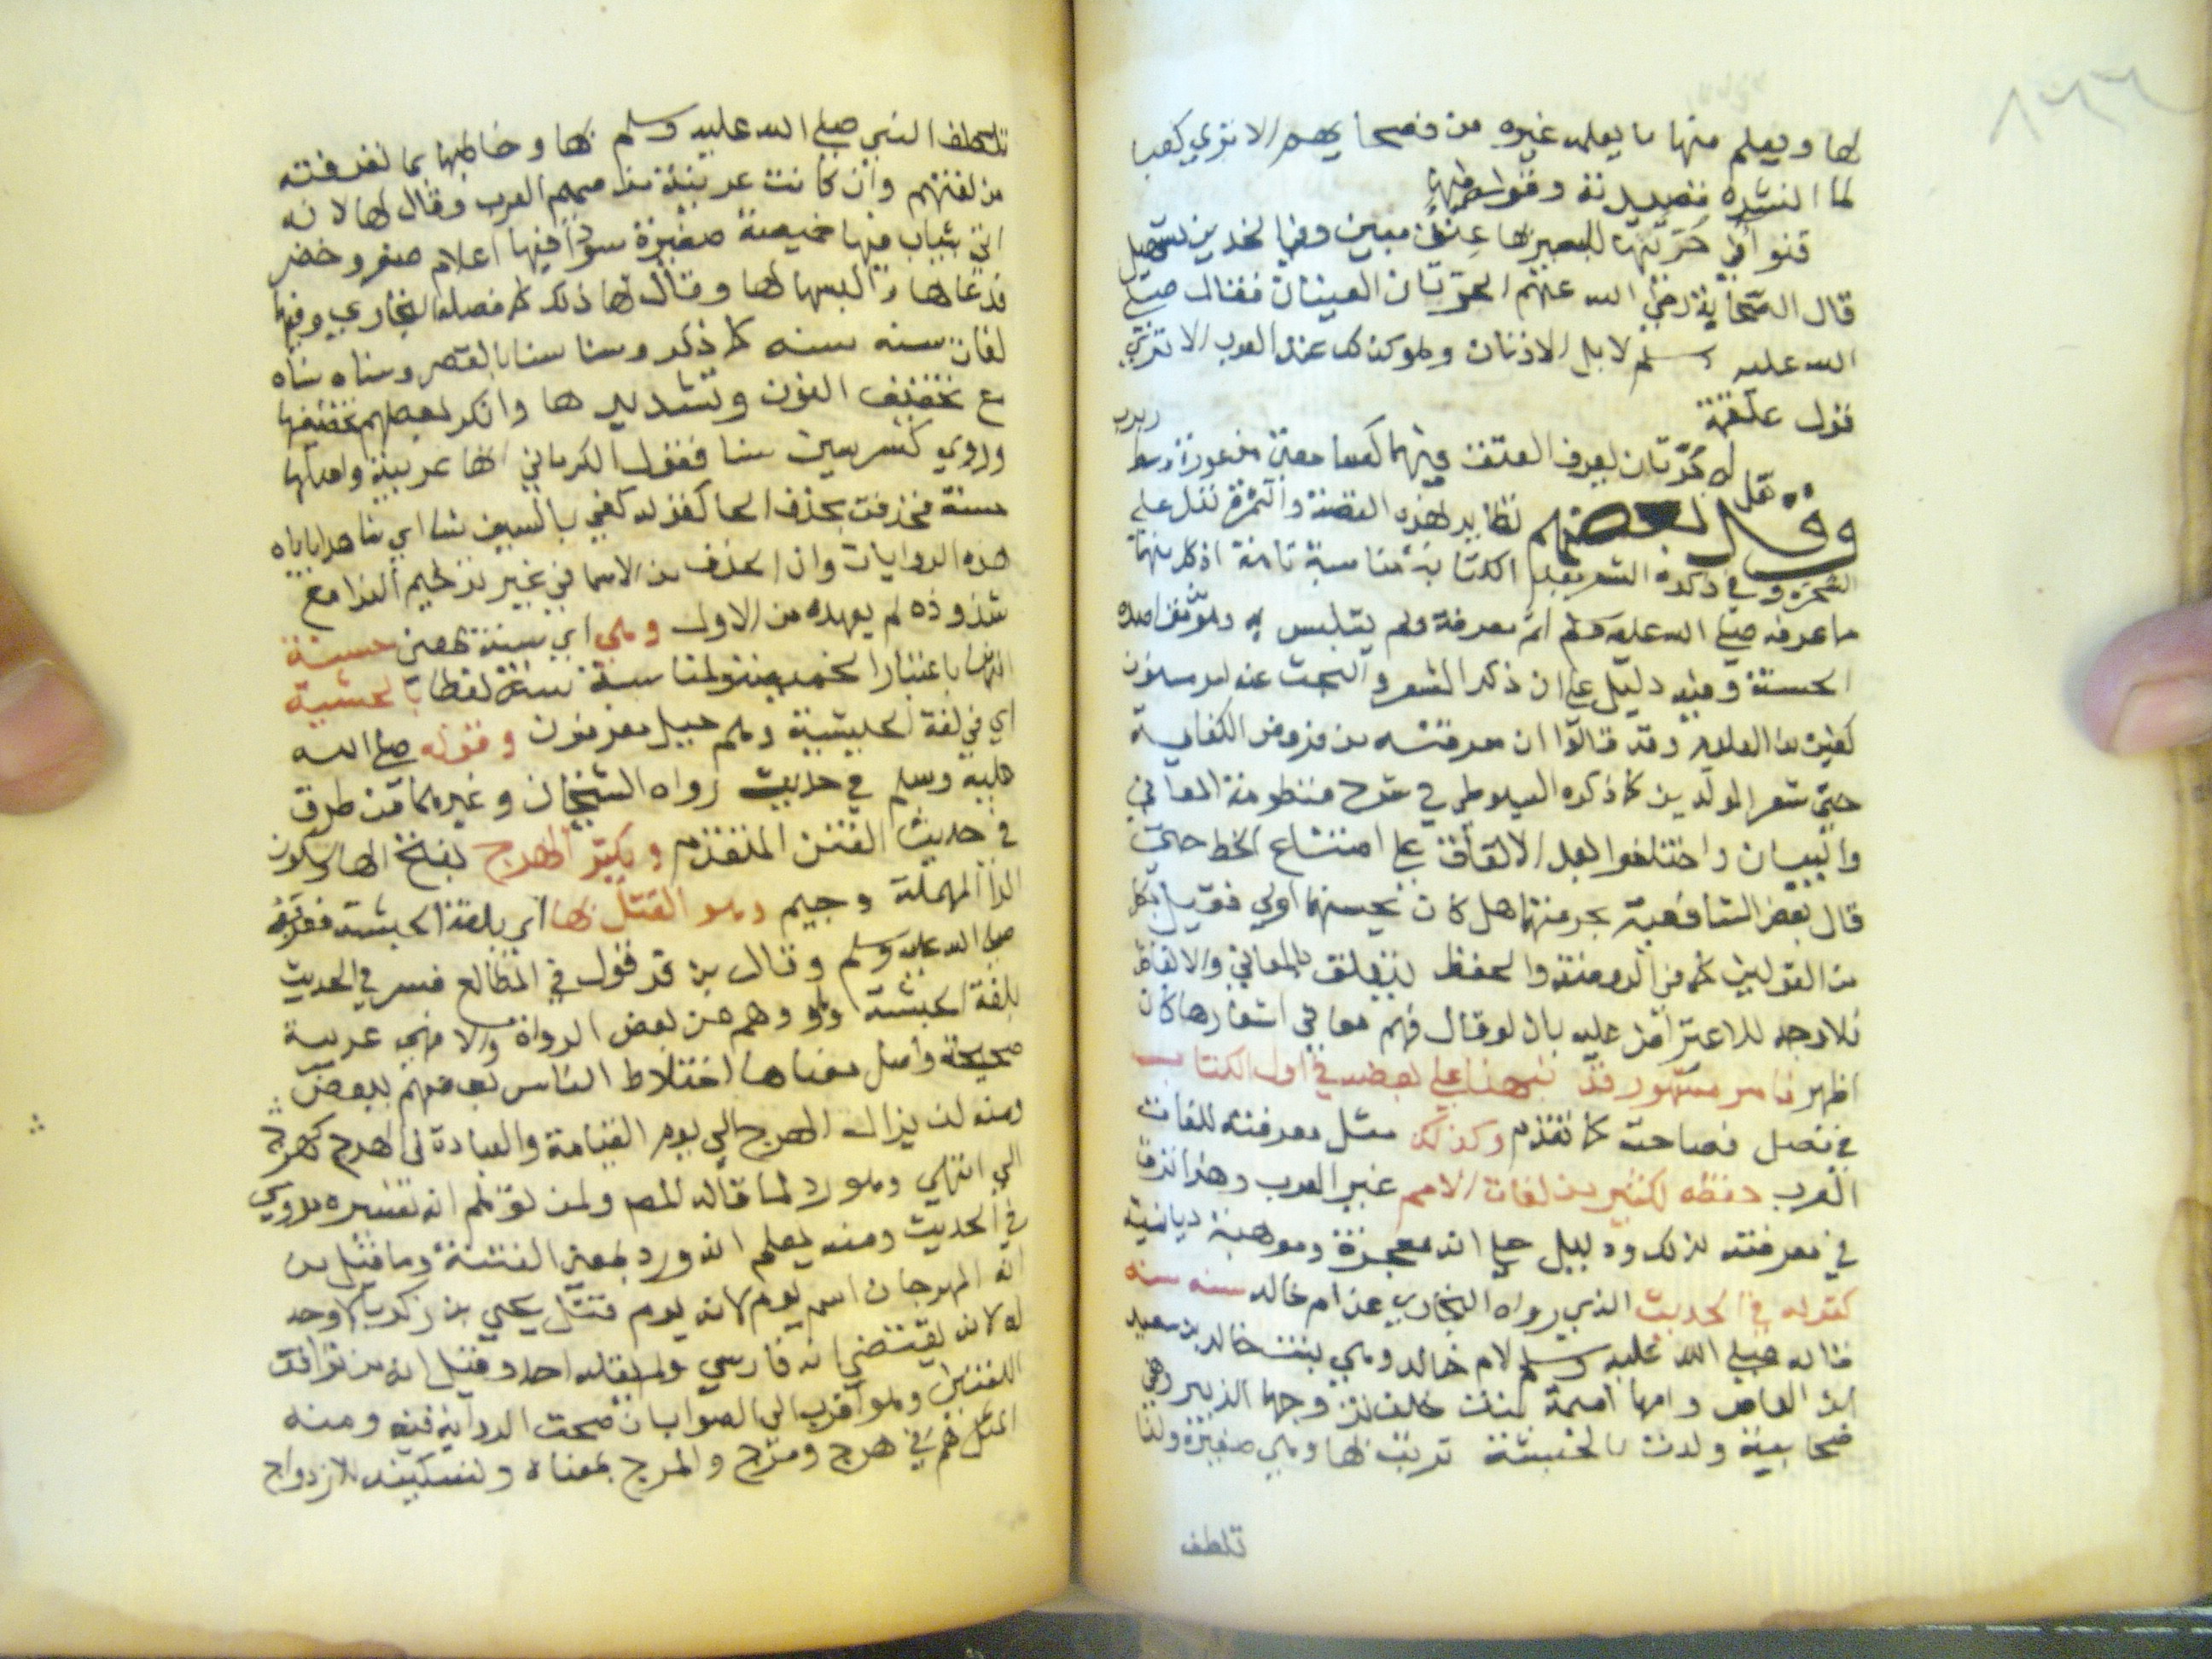 ١٢٢
لها ويعلم منها ما يعلمه غيره من فصحايهم الا تري كعبا
لما انشده قصيدته وقوله فيها
قنوا في حرتيها للبصير بها عتق مبين وفي الخدين تسهيل
قال الصحابة رضي الله عنهم الحرتان العينان فقال صلي
الله عليه وسلم لا بل الاذنان وهو كذلك عند العرب الا تري
قول علقمة
له حرتان يعرف العتق فيهما كسامعتي مذعورة وسط ربرب
وقال بعضهم نقل نظاير لهذه القصة والثمرة تدل علي
الشجرة وفي ذكره الشعر بعد الكتابة مناسبة تامة اذ كل منهما
ما عرفه صلي الله عليه وسلم اتم معرفة ولم يتلبس به وهو من مقاصده
الحسنة وفيه دليل علي ان ذكر الشعر والبحث عنه امر مسنون
كغيره من العلوم وقد قالوا ان معرفته من فروض الكفاية
حتي شعر المولدين كما ذكره السيوطي في شرح منظومة المعاني
والبيان واختلفوا بعد الاتفاق علي امتناع الخط حتي
قال بعض الشافعية بحرمتهما هل كان يحسنهما اولي فقيل بكل
من القولين كما في الروضة والحفظ يتعلق بالمعاني والالفاظ
فلا وجه للاعتراض عليه بان لو قال فهم معاني اشعارها كان
اظهر نامر مشهور قد نبهنا علي بعضه في اول الكتاب
في فصل فصاحته كما تقدم وكذلك مثل معرفته للغات
العرب حفظه لكثير من لغات الامم غير العرب وهذا اترقا
في معرفته لذلك ودليل علي انه معجزة وموهبة ربانية
كقوله في الحديث الذي رواه البخاري عن ام خالد سنه سنه
قاله صلي الله عليه وسلم لام خالد وهي بنت خالد بن سعيد
ابن العاص وامها اميمة بنت خلف تزوجها الزبير وهي
صحابية ولدت بالحبشة تربت بها وهي صغيرة ولذا
تلطف
تلطف النبي صلي الله عليه وسلم بها وخاطبها بما تعرفه
من لغتهم وان كانت عربية من صميم العرب وقال لها لانه
اتي بثياب فيها خميصة صغيرة سودا فيها اعلام صفر وخضر
فدعا لها والبسها لها وقال لها ذلك كما فصله البخاري وفيها
لغات سنه سنه كما ذكر وسنا سنا بالقصر وسناه سناه
مع تخفيف النون وتشديدها وانكر بعضهم تخفيفها
وروي كسر سين سنا فقول الكرماني انها عربية واصلها
حسنة فحذفت بحذف الحا كقوله كفي بالسيف شا اي شاهدا ياباه
هذه الروايات وان الحذف من الاسما في غير ترخيم الندا مع
شذوذه لم يعهد من الاول وهي اي سنة بمعني حسنة
انها باعتبار الخميصة ولمناسبة سنة لفظا بالحبشية
اي في لغة الحبشية وهم جيل معروفون وقوله صلي الله
عليه وسلم في حديث رواه الشيخان وغيرهما من طرق
في حديث الفتن المتقدم ويكثر الهرج بفتح الها وسكون
الرا المهملة وجيم وهو القتل بها اي بلغة الحبشة فعرفه
صلي الله عليه وسلم وقال بن قرقول في المطالع فسر في الحديث
بلغة الحبشة وهو وهم من بعض الرواة والا فهي عربية
صحيحة واصل معناها اختلاط الناس بعضهم ببعض
ومنه لن يزال الهرج الي يوم القيامة والعبادة في الهرج كهجرة
الي انتهي وهو رد لما قاله المص ولمن توهم ان تفسيره مروي
في الحديث ومنه يعلم انه ورد بمعني الفتنة وما قيل من
ان المهرجان اسم يوم لانه يوم قتل يحيي بن زكريا لا وجه
له لانه يقتضي انه فارسي ولم يقله احد وقيل انه من توافق
اللغتين وهو اقرب الي الصواب ان صحت الرواية فيه ومنه
المثل هم في هرج ومرج والمرج بمعناه وتسكينه للازدواج